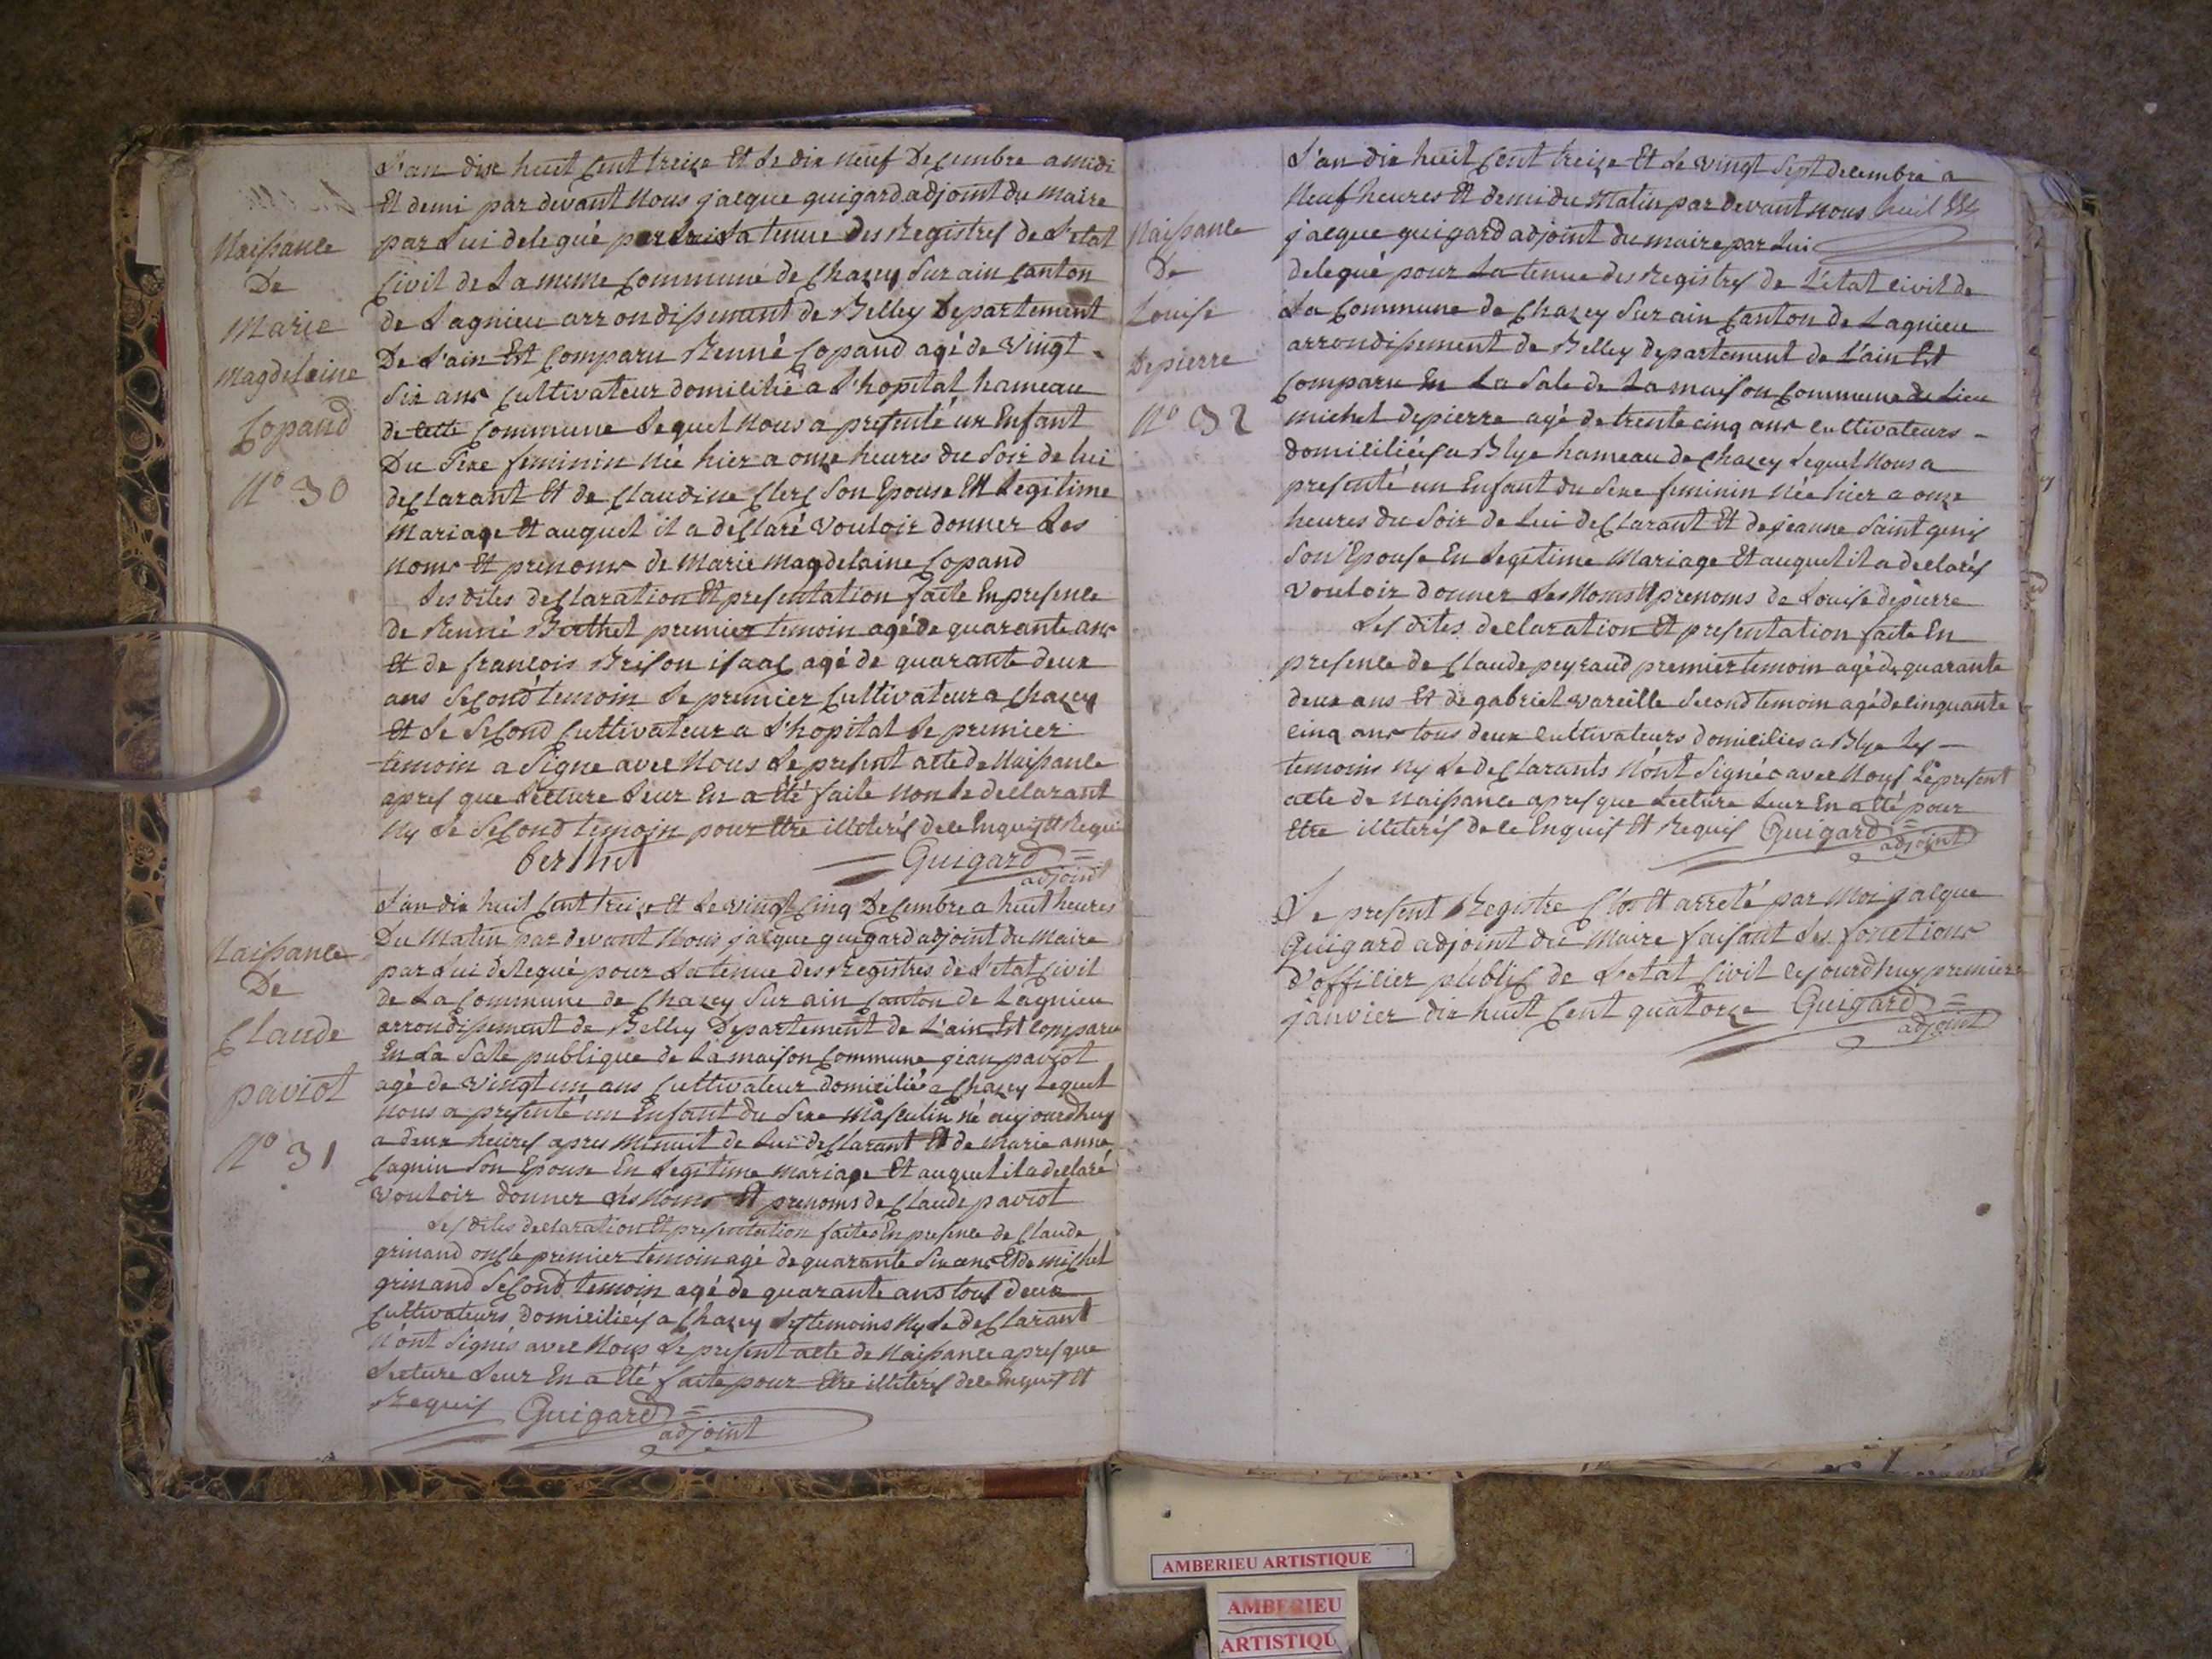 Naissance
De
Marie
Magdelaine
Copand
N° 30
L'an dix huit Cent treize Et Le dix neuf Decembre a midi
Et demi par devant Nous jacque guigard adjoint du Maire
par Lui delegué La tenue Des Registres de L'etat
Civil de La meme Commune de Chazey Sur ain Canton
de Lagnieu arrondissement de Belley Departement
De L'ain Est Comparu Renné Copand agé de Vingt
Six ans Cultivateur domicilié a L'hopital hameau
de cette Commune Lequel Nous a presenté un Enfant
Du Sexe feminin Née hier a onze heures du Soir de lui
declarant Et de Claudine Clerc Son Epouse En Legitime
Mariage Et auquel il a declaré Vouloir donner Les
Noms Et prenoms de Marie Magdelaine Copand
Les dites declaration Et presentation faite En presence
de Renné Berthet premier temoin agé de quarante ans
Et de francois Brison isaac agé de quarante deux
ans Second temoin Le premier Cultivateur a Chazey
Et Le Second Cultivateur a L'hopital Le premier
temoin a Signe avec Nous Le present acte de Naissance
apres que Lecture Leur En a Eté faite Non Le declarant
Ny Le Second temoin pour Etre illiterés de ce Enquis Et Requi
berthet Guigard
adjoint
Naissance
De
Claude
paviot
N° 31
L'an dix huit Cent treize Et Le vingt Cinq Decembre a huit heures
Du Matin par devant Nous jacque guigard adjoint du Maire
par Lui delegué pour La tenue des Registres de L'etat Civil
de La Commune de Chazey Sur ain Canton de Lagnieu
arrondissement de Belley Departement de L'ain Est Comparu
En La Sale publique de La maison Commune jean paviot
agé de Vingt un ans Cultivateur domicilié a Chazey Lequel
Nous a presenté un Enfant du Sexe Masculin né aujourdhuy
a deux heures apres Minuit de Lui declarant Et de Marie anne
Caguin Son Epouse En Legitime Mariage Et auquel il a declaré
Vouloir donner Les Noms Et prenoms de Claude paviot
Les dites declaration Et presentation faites En presence de Claude
grinand oncle premier temoin agé de quarante Six ans Et de Michel
grinand Second temoin agé de quarante ans tous deux
Cultivateurs domiciliés a Chazey Les temoins Ny Le declarant
N'ont Signés avec Nous Le present acte de Naissance apres que
Lecture Leur En a Eté faite pour Etre illiterés de ce Enquis Et
Requis Guigard
adjoint
Naissance
De
Louise
Depierre
N° 32
L'an dix huit Cent treize Et Le vingt Sept decembre a
Neuf heures Et demi du Matin par devant Nous
jacque guigard adjoint du maire par Lui
delegué pour La tenue des Registres de L'etat civil de
La Commune de Chazey Sur ain Canton de Lagnieu
arrondissement de Belley departement de L'ain Est
Comparu En La Sale de La maison Commune du Lieu
Michel depierre agé de trente cinq ans cultivateurs
domiciliés a Blye hameau de Chazey Lequel Nous a
presenté un Enfant du Sexe feminin Née hier a onze
heures du Soir de Lui declarant Et de jeanne Saint genis
Son Epouse En Legitime Mariage Et auquel il a declarés
Vouloir donner Les Noms Et prenoms de Louise depierre
Les dites declaration Et presentation faite En
presence de Claude peyraud premier temoin agé de quarante
deux ans Et de gabriel vareille Second temoin agé de cinquante
cinq ans tous deux cultivateurs domicilies a Blye Les
temoins Ny Le declarants N'ont Signés avec Nous Le present
acte de Naissance apres que Lecture Leur En a Eté pour
Etre illiterés de ce Enquis Et Requis Guigard
adjoint
Le present Registre Clos Et arreté par Moi jacque
Guigard adjoint du Maire faisant Les fonctions
d'officier public de L'etat Civil cejourdhuy premiere
janvier dix huit Cent quatorze Guigard
adjoint
AMBERIEU ARTISTIQUE
AMBERIEU
ARTISTIQU